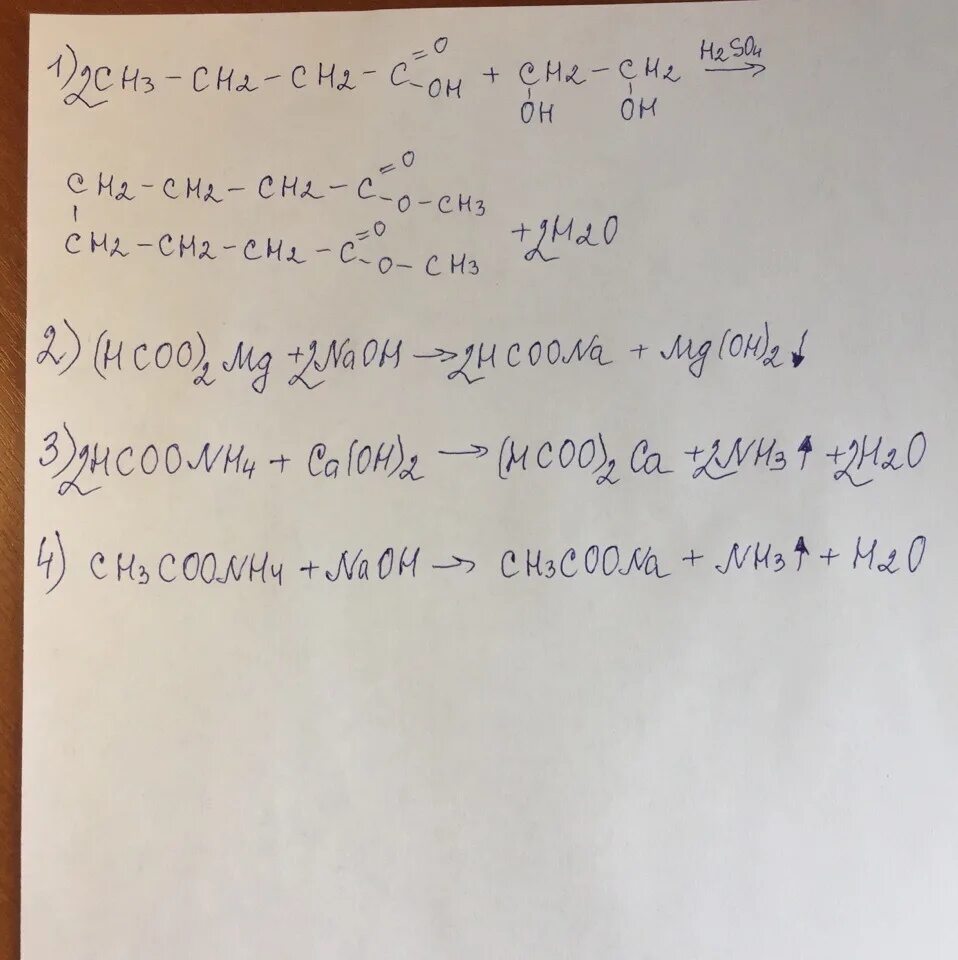 1) 2CH3 - CH2 - CH2 - C =O -OH + CH2 - CH2 H2SO4 →
OH OH
CH2 - CH2 - CH2 - C =O -O - CH3
CH2 - CH2 - CH2 - C =O -O - CH3 + 2H2O
2) (HCOO)2 Mg + 2NaOH → 2HCOONa + Mg(OH)2 ↓
3) 2HCOONH4 + Ca(OH)2 → (HCOO)2 Ca + 2NH3 ↑ + 2H2O
4) CH3COONH4 + NaOH → CH3COONa + NH3 ↑ + H2O